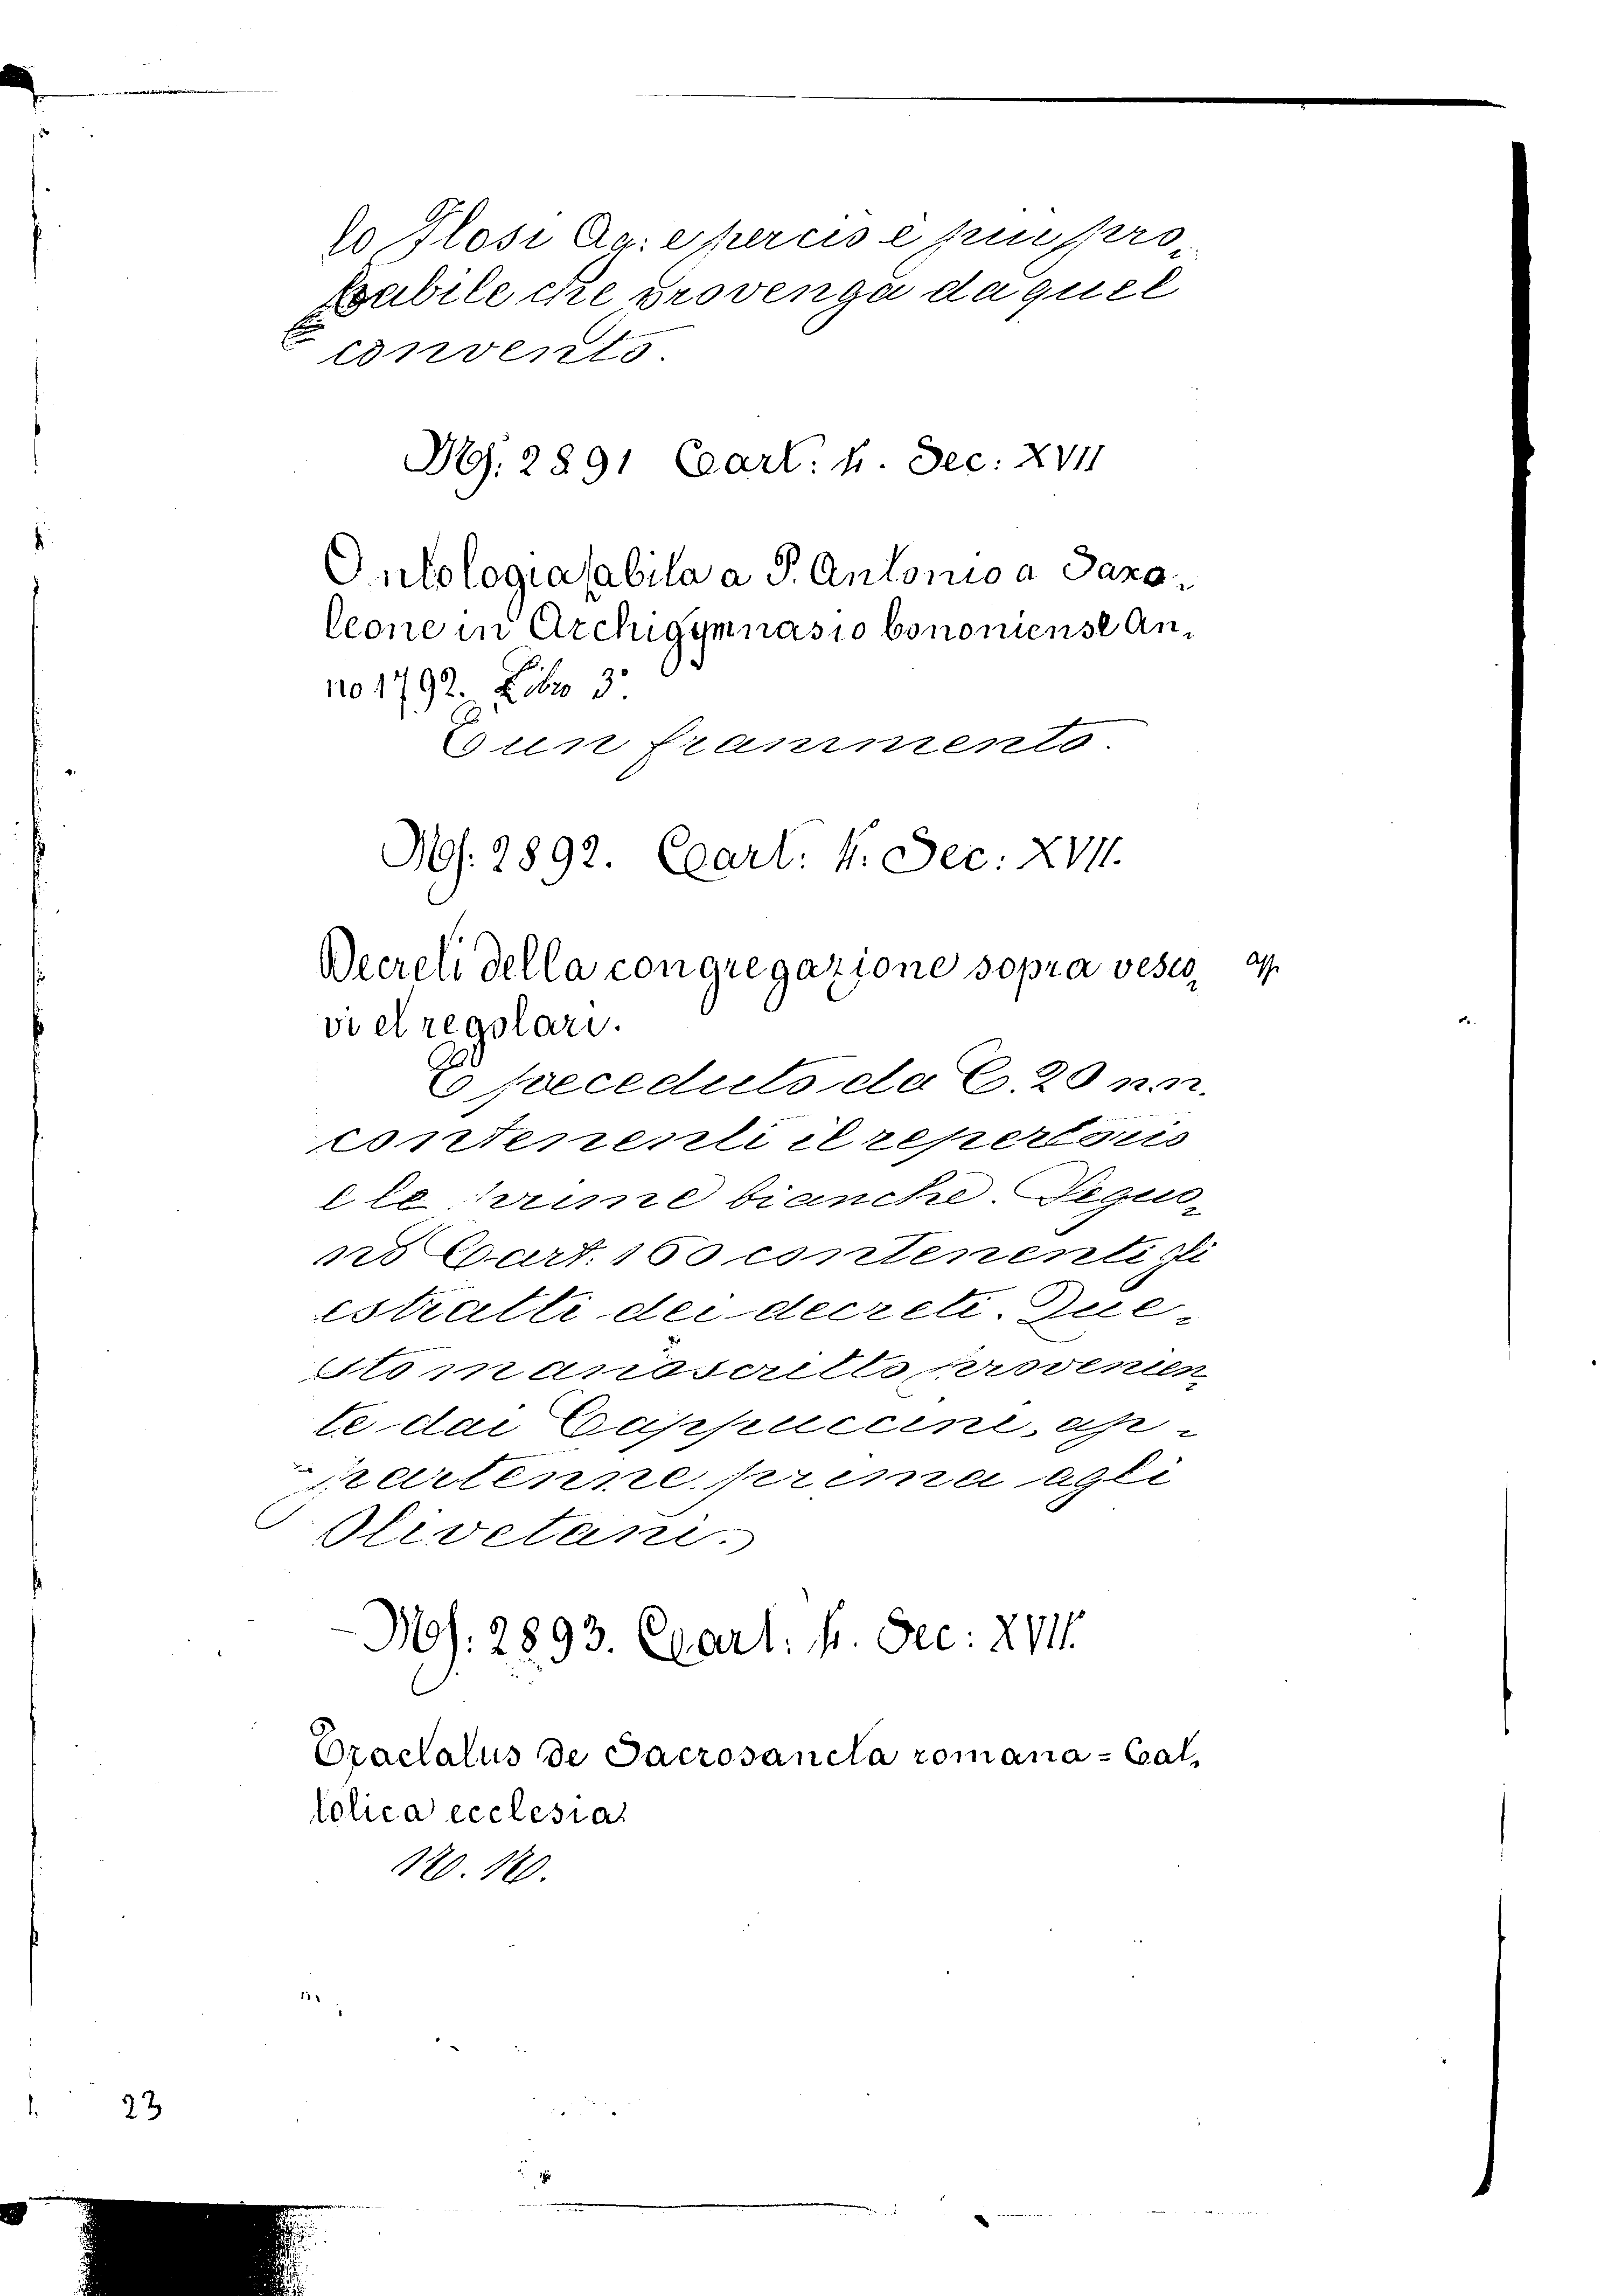 lo Flosi Ag: e percis è piu pro-
babile che provenga da quel
convento.
Ms. 2891 Cart. 4. Sec: XVII
Ontologia habita a P. Antonio a Saxo-
leone in Archigymnasio bononiense An-
no 1792. Libro 3°.
È un frammento.
Ms. 2892. Cart: 4. Sec: XVII.
Decreti della congregazione sopra vesco-
vi et regolari.
È preceduto da C. 20 n.n.
contenenti il repertorio
e le prime bianche. Seguo-
no Cart. 160 contenenti gli
estratti dei decreti. Que-
sto manoscritto provenien-
te dai Cappuccini, ap-
partenne prima agli
Olivetani.
Ms. 2893. Cart: 4. Sec: XVII.
Tractatus de Sacrosancta romana = Cat-
tolica ecclesia
N. N.
23